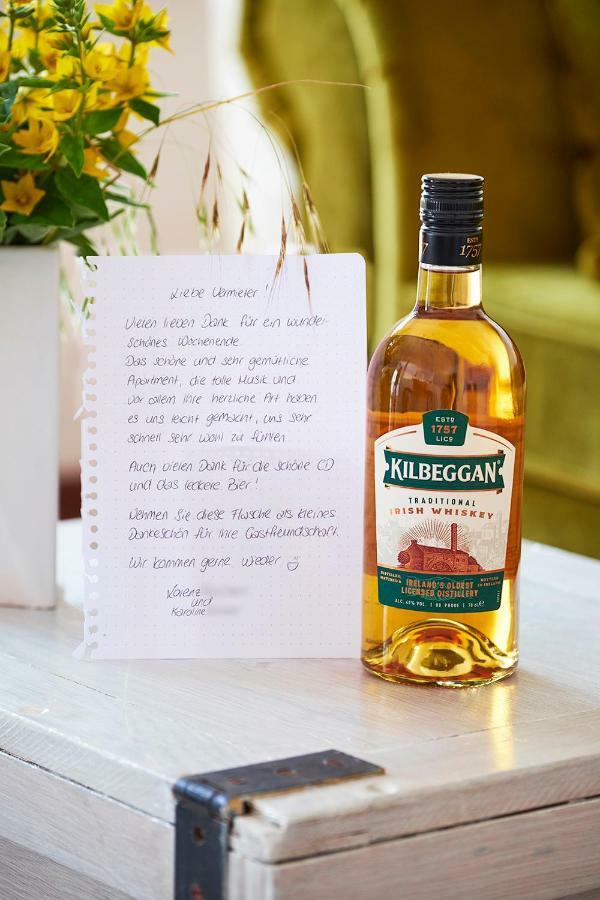 Liebe Vermieter!
Vielen lieben Dank für ein wunder-
schönes Wochenende.
Das schöne und sehr gemütliche
Apartment, die tolle Musik und
vor allem Ihre herzliche Art haben
es uns leicht gemacht, uns sehr
schnell sehr wohl zu fühlen.
Auch vielen Dank für die schöne CD
und das leckere Bier!
Nehmen Sie diese Flasche als kleines
Dankeschön für Ihre Gastfreundschaft.
Wir kommen gerne wieder
Lorenz
und
Karoline
ESTD
1757
ESTD
1757
LICD
KILBEGGAN
TRADITIONAL
IRISH WHISKEY
IRELAND'S OLDEST
LICENSED DISTILLERY
ALC. 40% VOL. | 80 PROOF | 70 cl e